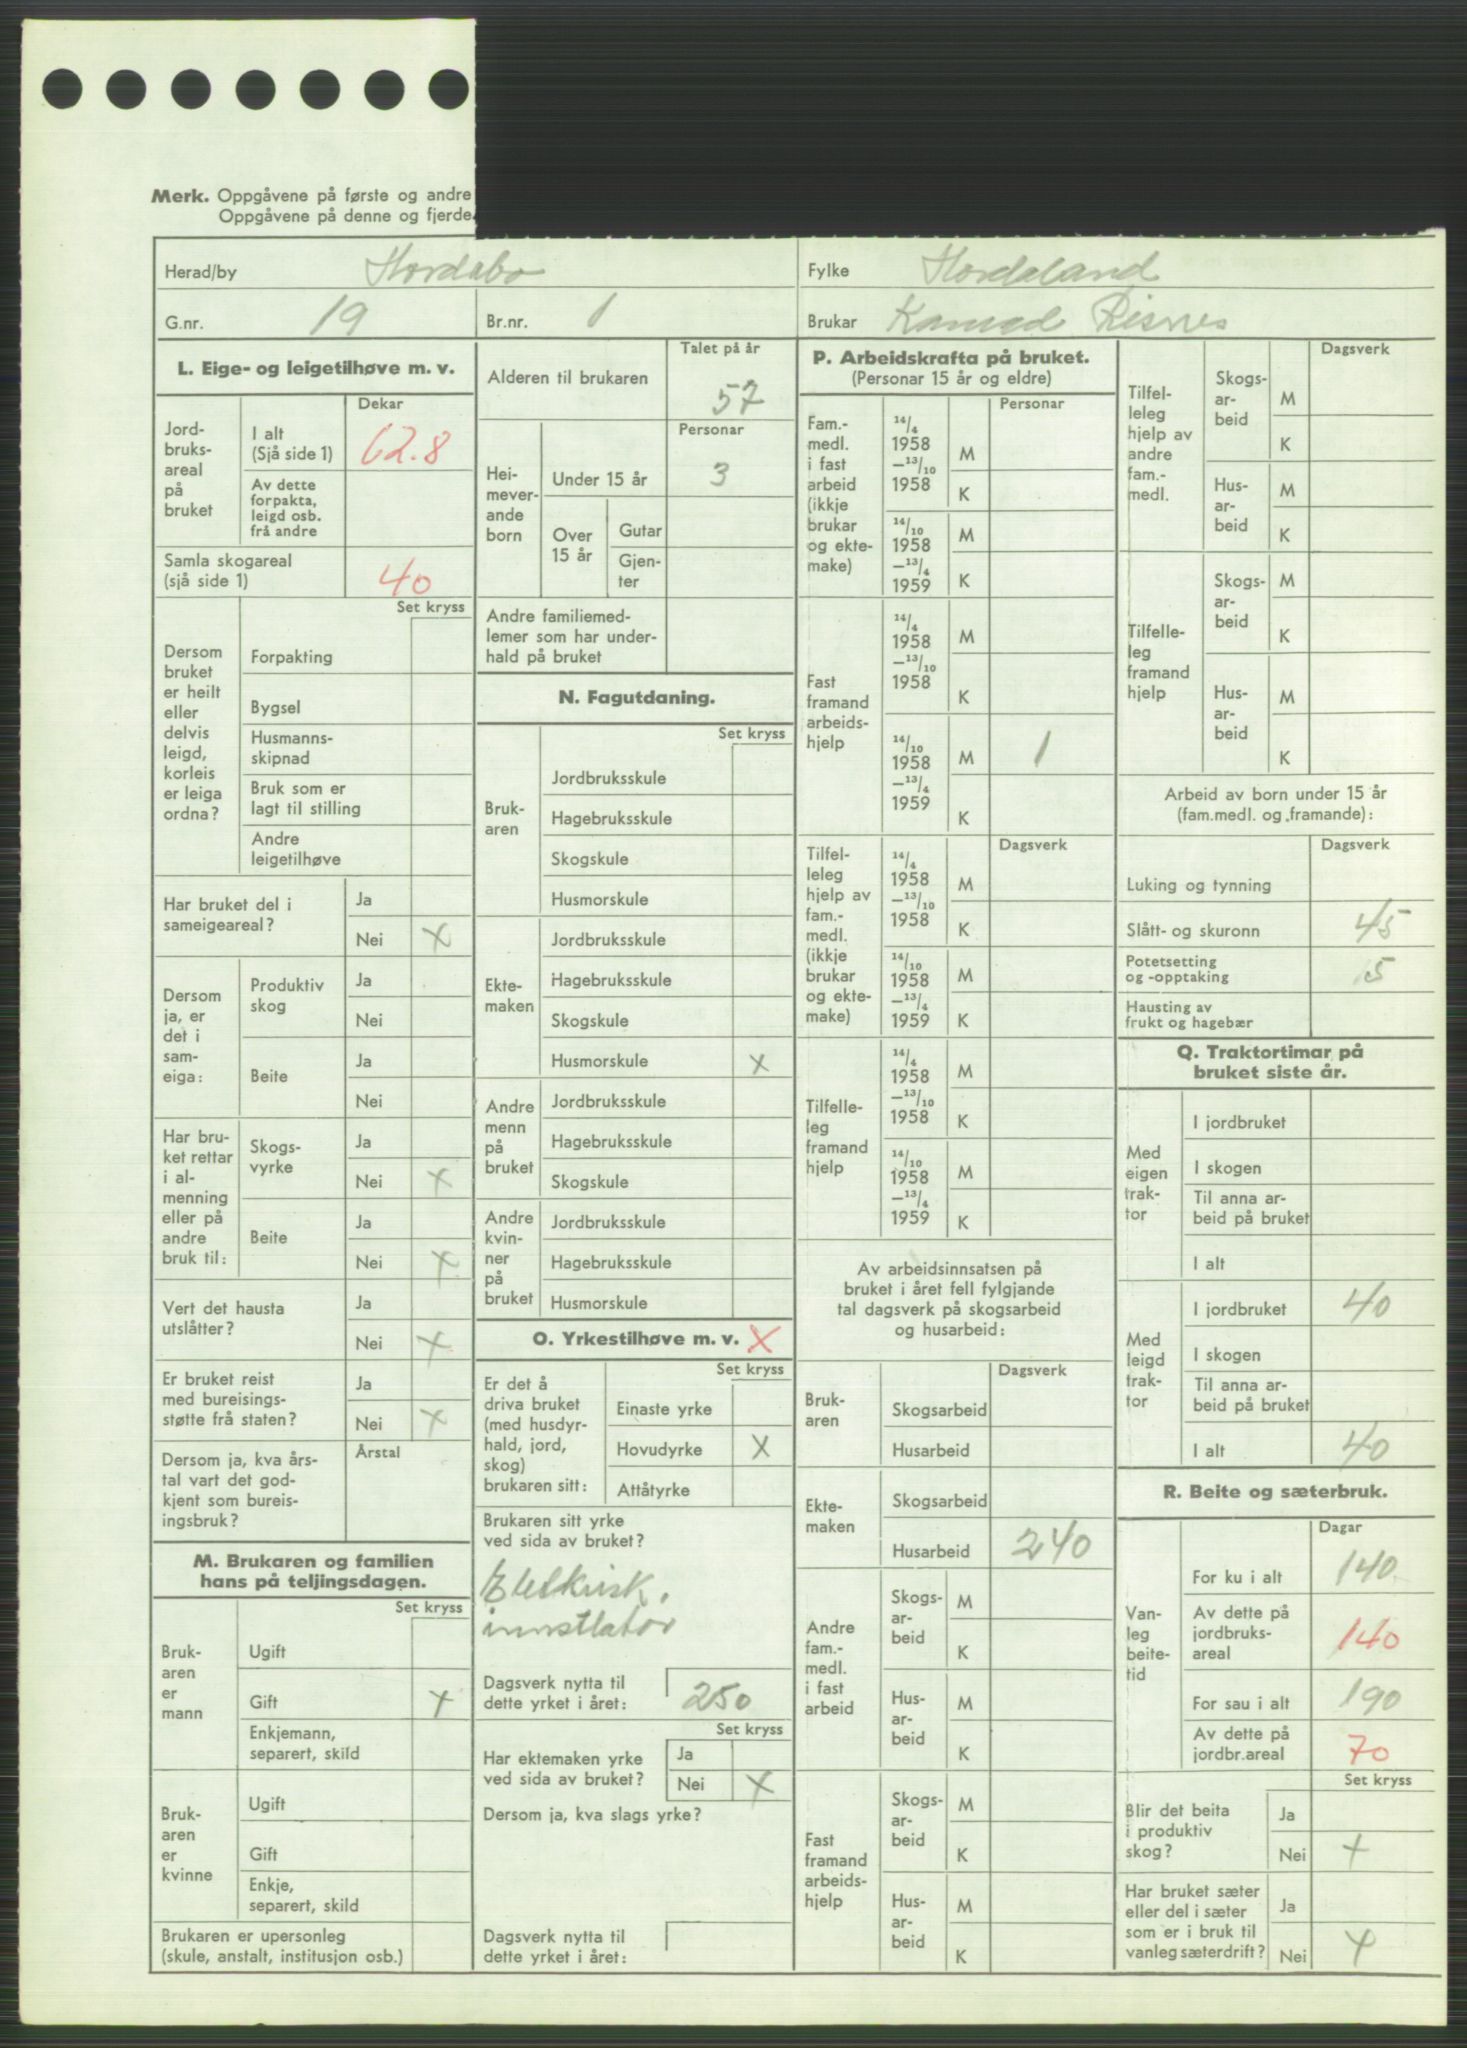 Merk. Oppgåvene på første og andre
Oppgåvene på denne og fjerde
Herad/by Hordabo
Fylke Hordaland
G.nr. 19
Br.nr. 1
Brukar Konrad Risnes
L. Eige- og leigetilhøve m. v.
Dekar
Jord-
bruks-
areal
på
bruket
I alt
(Sjå side 1) 62.8
Av dette
forpakta,
leigd osb.
frå andre
Samla skogareal
(sjå side 1) 40
Set kryss
Dersom
bruket
er heilt
eller
delvis
leigd,
korleis
er leiga
ordna?
Forpakting
Bygsel
Husmanns-
skipnad
Bruk som er
lagt til stilling
Andre
leigetilhøve
Har bruket del i
sameigeareal?
Ja
Nei x
Dersom
ja, er
det i
sam-
eiga:
Produktiv
skog
Ja
Nei
Beite
Ja
Nei
Har bru-
ket rettar
i al-
menning
eller på
andre
bruk til:
Skogs-
vyrke
Ja
Nei x
Beite
Ja
Nei x
Vert det hausta
utslåtter?
Ja
Nei x
Er bruket reist
med bureisings-
støtte frå staten?
Ja
Nei x
Dersom ja, kva års-
tal vart det god-
kjent som bureis-
ingsbruk?
Årstal
M. Brukaren og familien
hans på teljingsdagen.
Set kryss
Bruk-
aren
er
mann
Ugift
Gift x
Enkjemann,
separert, skild
Bruk-
aren
er
kvinne
Ugift
Gift
Enkje,
separert, skild
Brukaren er upersonleg
(skule, anstalt, institusjon osb.)
Talet på år
Alderen til brukaren 57
Personar
Hei-
mever-
ande
born
Under 15 år 3
Over
15 år
Gutar
Gjen-
ter
Andre familiemed-
lemer som har under-
hald på bruket
N. Fagutdaning.
Set kryss
Bruk-
aren
Jordbruksskule
Hagebruksskule
Skogskule
Husmorskule
Ekte-
maken
Jordbruksskule
Hagebruksskule
Skogskule
Husmorskule x
Andre
menn
på
bruket
Jordbruksskule
Hagebruksskule
Skogskule
Andre
kvin-
ner
på
bruket
Jordbruksskule
Hagebruksskule
Husmorskule
O. Yrkestilhøve m. v. X
Set kryss
Er det å
driva bruket
(med husdyr-
hald, jord,
skog)
brukaren sitt:
Einaste yrke
Hovudyrke X
Attåtyrke
Brukaren sitt yrke
ved sida av bruket?
Dagsverk nytta til
dette yrket i året: 250
Set kryss
Har ektemaken yrke
ved sida av bruket?
Ja
Nei x
Dersom ja, kva slags yrke?
Dagsverk nytta til
dette yrket i året:
P. Arbeidskrafta på bruket.
(Personar 15 år og eldre)
Personar
Fam.-
medl.
i fast
arbeid
(ikkje
brukar
og ekte-
make)
14/4
1958
—13/10
1958
M
K
14/10
1958
—13/4
1959
M
K
Fast
framand
arbeids-
hjelp
14/4
1958
—13/10
1958
M
K
14/10
1958
—13/4
1959
M 1
K
Dagsverk
Tilfel-
leleg
hjelp av
fam.-
medl.
(ikkje
brukar
og ekte-
make)
14/4
1958
—13/10
1958
M
K
14/10
1958
—13/4
1959
M
K
Tilfelle-
leg
framand
hjelp
14/4
1958
—13/10
1958
M
K
14/10
1958
—13/4
1959
M
K
Av arbeidsinnsatsen på
bruket i året fell fylgjande
tal dagsverk på skogsarbeid
og husarbeid:
Dagsverk
Bruk-
aren
Skogsarbeid
Husarbeid
Ekte-
maken
Skogsarbeid
Husarbeid 240
Andre
fam.-
medl.
i fast
arbeid
Skogs-
ar-
beid
M
K
Hus-
ar-
beid
M
K
Fast
framand
arbeids-
hjelp
Skogs-
ar-
beid
M
K
Hus-
ar-
beid
M
K
Dagsverk
Tilfel-
leleg
hjelp av
andre
fam.-
medl.
Skogs-
ar-
beid
M
K
Hus-
ar-
beid
M
K
Tilfelle-
leg
framand
hjelp
Skogs-
ar-
beid
M
K
Hus-
ar-
beid
M
K
Arbeid av born under 15 år
(fam.medl. og framande):
Dagsverk
Luking og tynning
Slått- og skuronn 45
Potetsetting
og -opptaking 15
Hausting av
frukt og hagebær
Q. Traktortimar på
bruket siste år.
Med
eigen
trak-
tor
I jordbruket
I skogen
Til anna ar-
beid på bruket
I alt
Med
leigd
trak-
tor
I jordbruket 40
I skogen
Til anna ar-
beid på bruket
I alt 40
R. Beite og sæterbruk.
Dagar
Van-
leg
beite-
tid
For ku i alt 140
Av dette på
jordbruks-
areal 140
For sau i alt 190
Av dette på
jordbr.areal 70
Set kryss
Blir det beita
i produktiv
skog?
Ja
Nei x
Har bruket sæter
eller del i sæter
som er i bruk til
vanleg sæterdrift?
Ja
Nei x